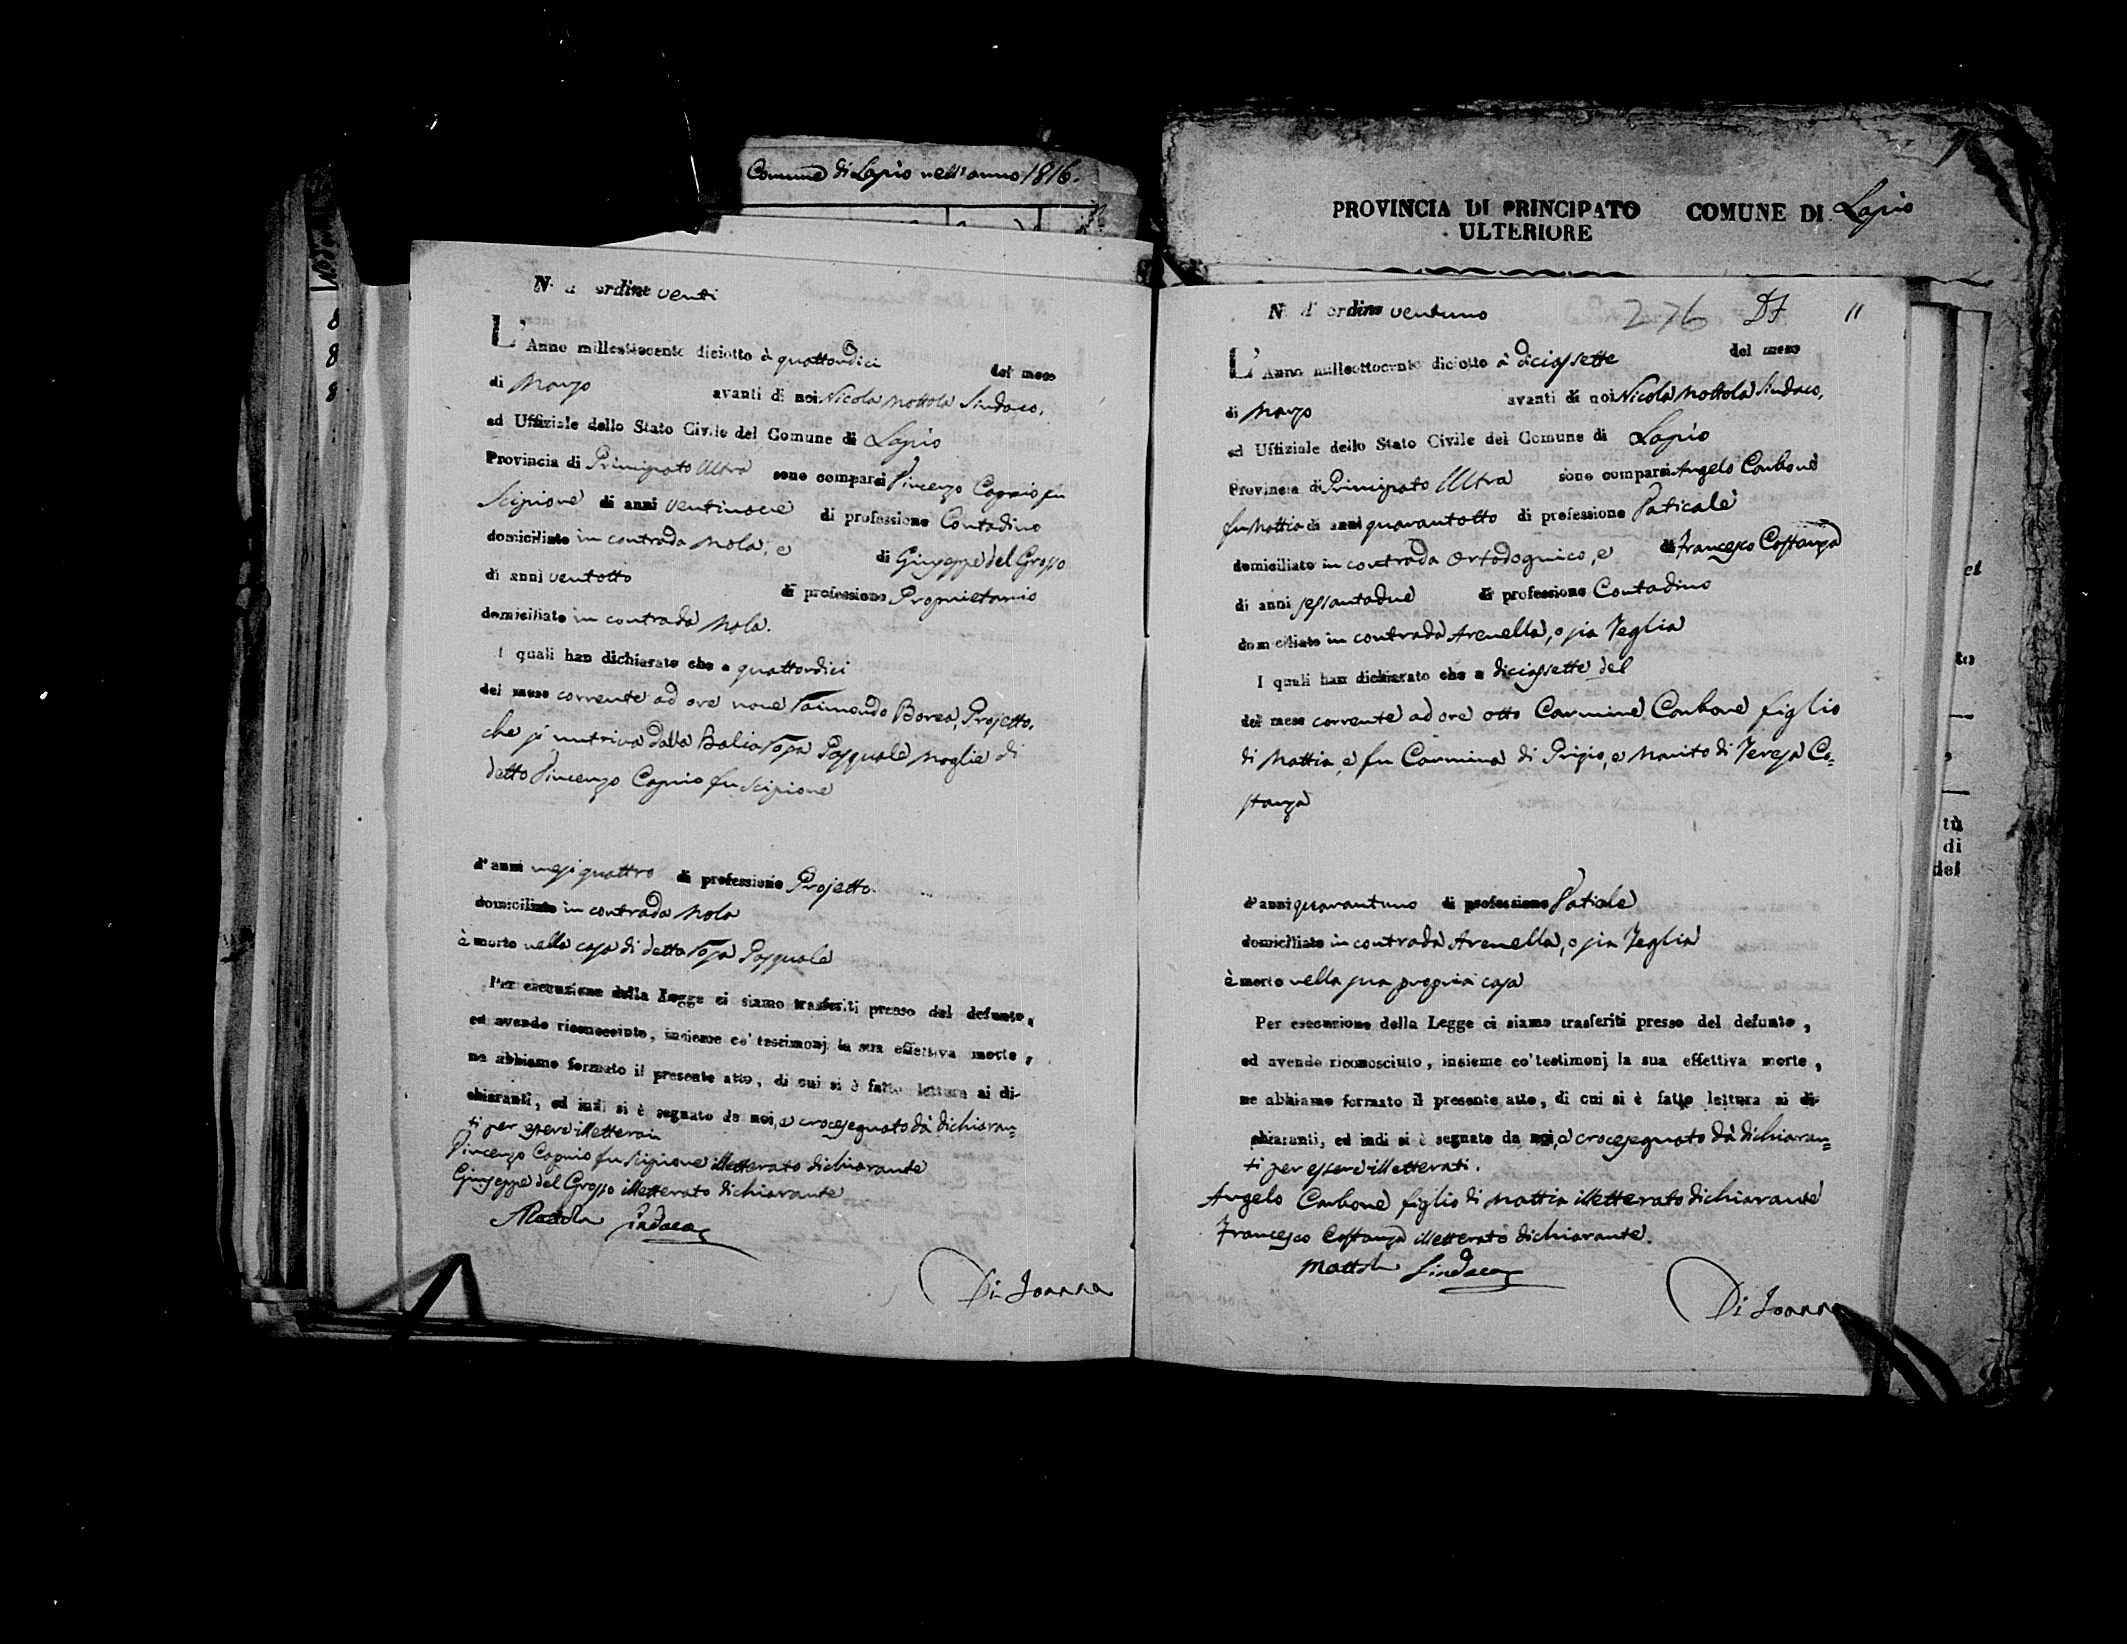 Comune di Lapio nell'anno 1816.
PROVINCIA DI PRINCIPATO COMUNE DI Lapio
ULTERIORE
8
8
8
N. d'ordine venti
L'Anno milleottocento diciotto à quattordici del mese
di Marzo avanti di noi Nicola Mottola Sindaco,
ed Uffiziale dello Stato Civile del Comune di Lapio
Provincia di Principato Ultra sono comparsi Vincenzo Capnio fu
Scipione di anni ventinove di professione Contadino
domiciliato in contrada Mola, e di Giuseppe del Grosso
di anni ventotto di professione Proprietario
domiciliato in contrada Mola.
I quali han dichiarato che a quattordici
del mese corrente ad ore nove Raimondo Borea, Projetto,
che si nutriva dalla Balia Rosa Pasquale moglie di
detto Vincenzo Capnio fu Scipione
d'anni mesi quattro di professione Projetto
domiciliato in contrada Mola
è morto nella casa di detta Rosa Pasquale
Per esecuzione della Legge ci siamo trasferiti presso del defunto,
ed avendo riconosciuto, insieme co' testimonj la sua effettiva morte,
ne abbiamo formato il presente atto, di cui si è fatto lettura ai di-
chiaranti, ed indi si è segnato da noi, e crocesegnato dà dichiaran=
ti per essere illetterati
Vincenzo Capnio fu Scipione illetterato dichiarante
Giuseppe del Grosso illetterato dichiarante
Mottola Sindaco
Di Joanna
N. d'ordine ventuno 276 11
L'Anno milleottocento diciotto à diciassette del mese
di Marzo avanti di noi Nicola Mottola Sindaco,
ed Uffiziale dello Stato Civile del Comune di Lapio
Provincia di Principato Ultra sono comparsi Angelo Carbone
fu Mattia di anni quarantotto di professione Vaticale
domiciliato in contrada Ortodognico, e di Francesco Costanza
di anni sessantadue di professione Contadino
domiciliato in contrada Arenella, o sia Teglia
I quali han dichiarato che a diciassette del
del mese corrente ad ore otto Carmine Carbone figlio
di Mattia, e fu Carmina di Prizio, e Marito di Teresa Co=
stanza
d'anni quarantuno di professione Vaticale
domiciliato in contrada Arenella, o sia Teglia
è morto nella sua propria casa
Per esecuzione della Legge ci siamo trasferiti presso del defunto,
ed avendo riconosciuto, insieme co' testimonj la sua effettiva morte,
ne abbiamo formato il presente atto, di cui si è fatto lettura ai di-
chiaranti, ed indi si è segnato da noi, e crocesegnato dà dichiaran=
ti per essere illetterati.
Angelo Carbone figlio di Mattia illetterato dichiarante
Francesco Costanza illetterato dichiarante.
Mottola Sindaco
Di Joanna
to
tù
di
del